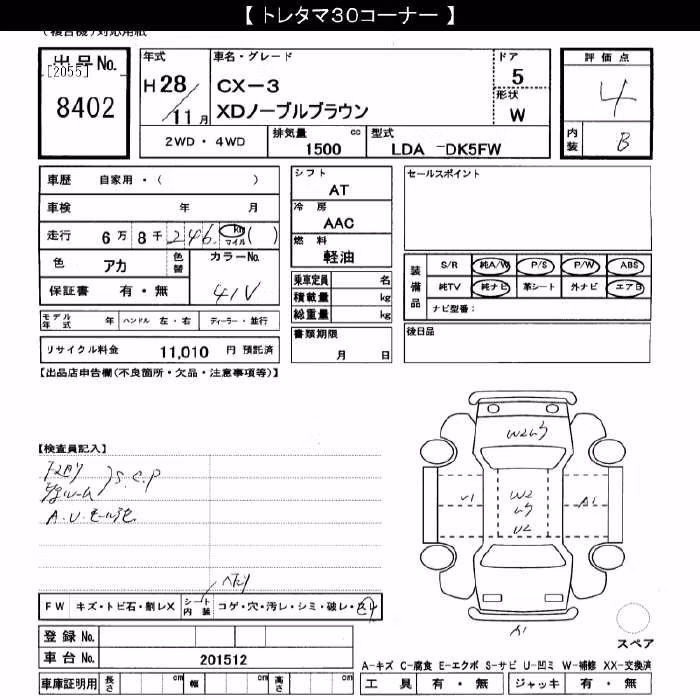 【トレタマ30コーナー】
(複合機)対応用紙
出品No. [2055]
8402
年式 H28/11月
車名・グレード
CX-3
XDノーブルブラウン
ドア 5
形状 W
評価点 4
内装 B
2WD・4WD
排気量 1500 cc
型式 LDA -DK5FW
車歴 自家用・( )
車検 年 月
走行 6万8千246 km マイル ( )
色 アカ 色替 カラーNo. 41V
保証書 有・無
モデル年式 年 ハンドル 左・右 ディーラー・並行
リサイクル料金 11,010 円 預託済
シフト AT
冷房 AAC
燃料 軽油
乗車定員 名
積載量 kg
総重量 kg
書類期限 月 日
セールスポイント
装備品 S/R 純A/W P/S P/W ABS
純TV 純ナビ 革シート 外ナビ エアB
ナビ型番:
後日品
【出品店申告欄(不良箇所・欠品・注意事項等)】
【検査員記入】
S.C.P
A.U.モール
W2
W2
U2
A1
A1
FW キズ・トビ石・割レX シート内装 コゲ・穴・汚レ・シミ・破レ・
ヘタリ
登録No.
車台No. 201512
車庫証明用 長さ cm 幅 cm 高さ cm
スペア
A-キズ C-腐食 E-エクボ S-サビ U-凹ミ W-補修 XX-交換済
工具 有・無 ジャッキ 有・無